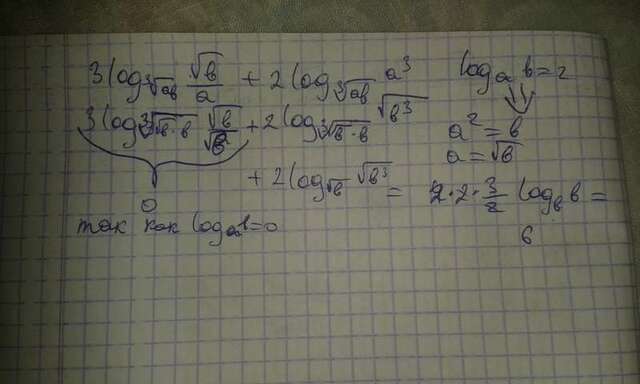 3 log ∛ab √b/a + 2 log ∛ab a³
log a b = 2
3 log ∛√b·b √b/√b + 2 log ∛√b·b √b³
a² = b
a = √b
+ 2 log √b √b³ = 2·2·3/2 log b b =
0
6
так как log a 1 = 0